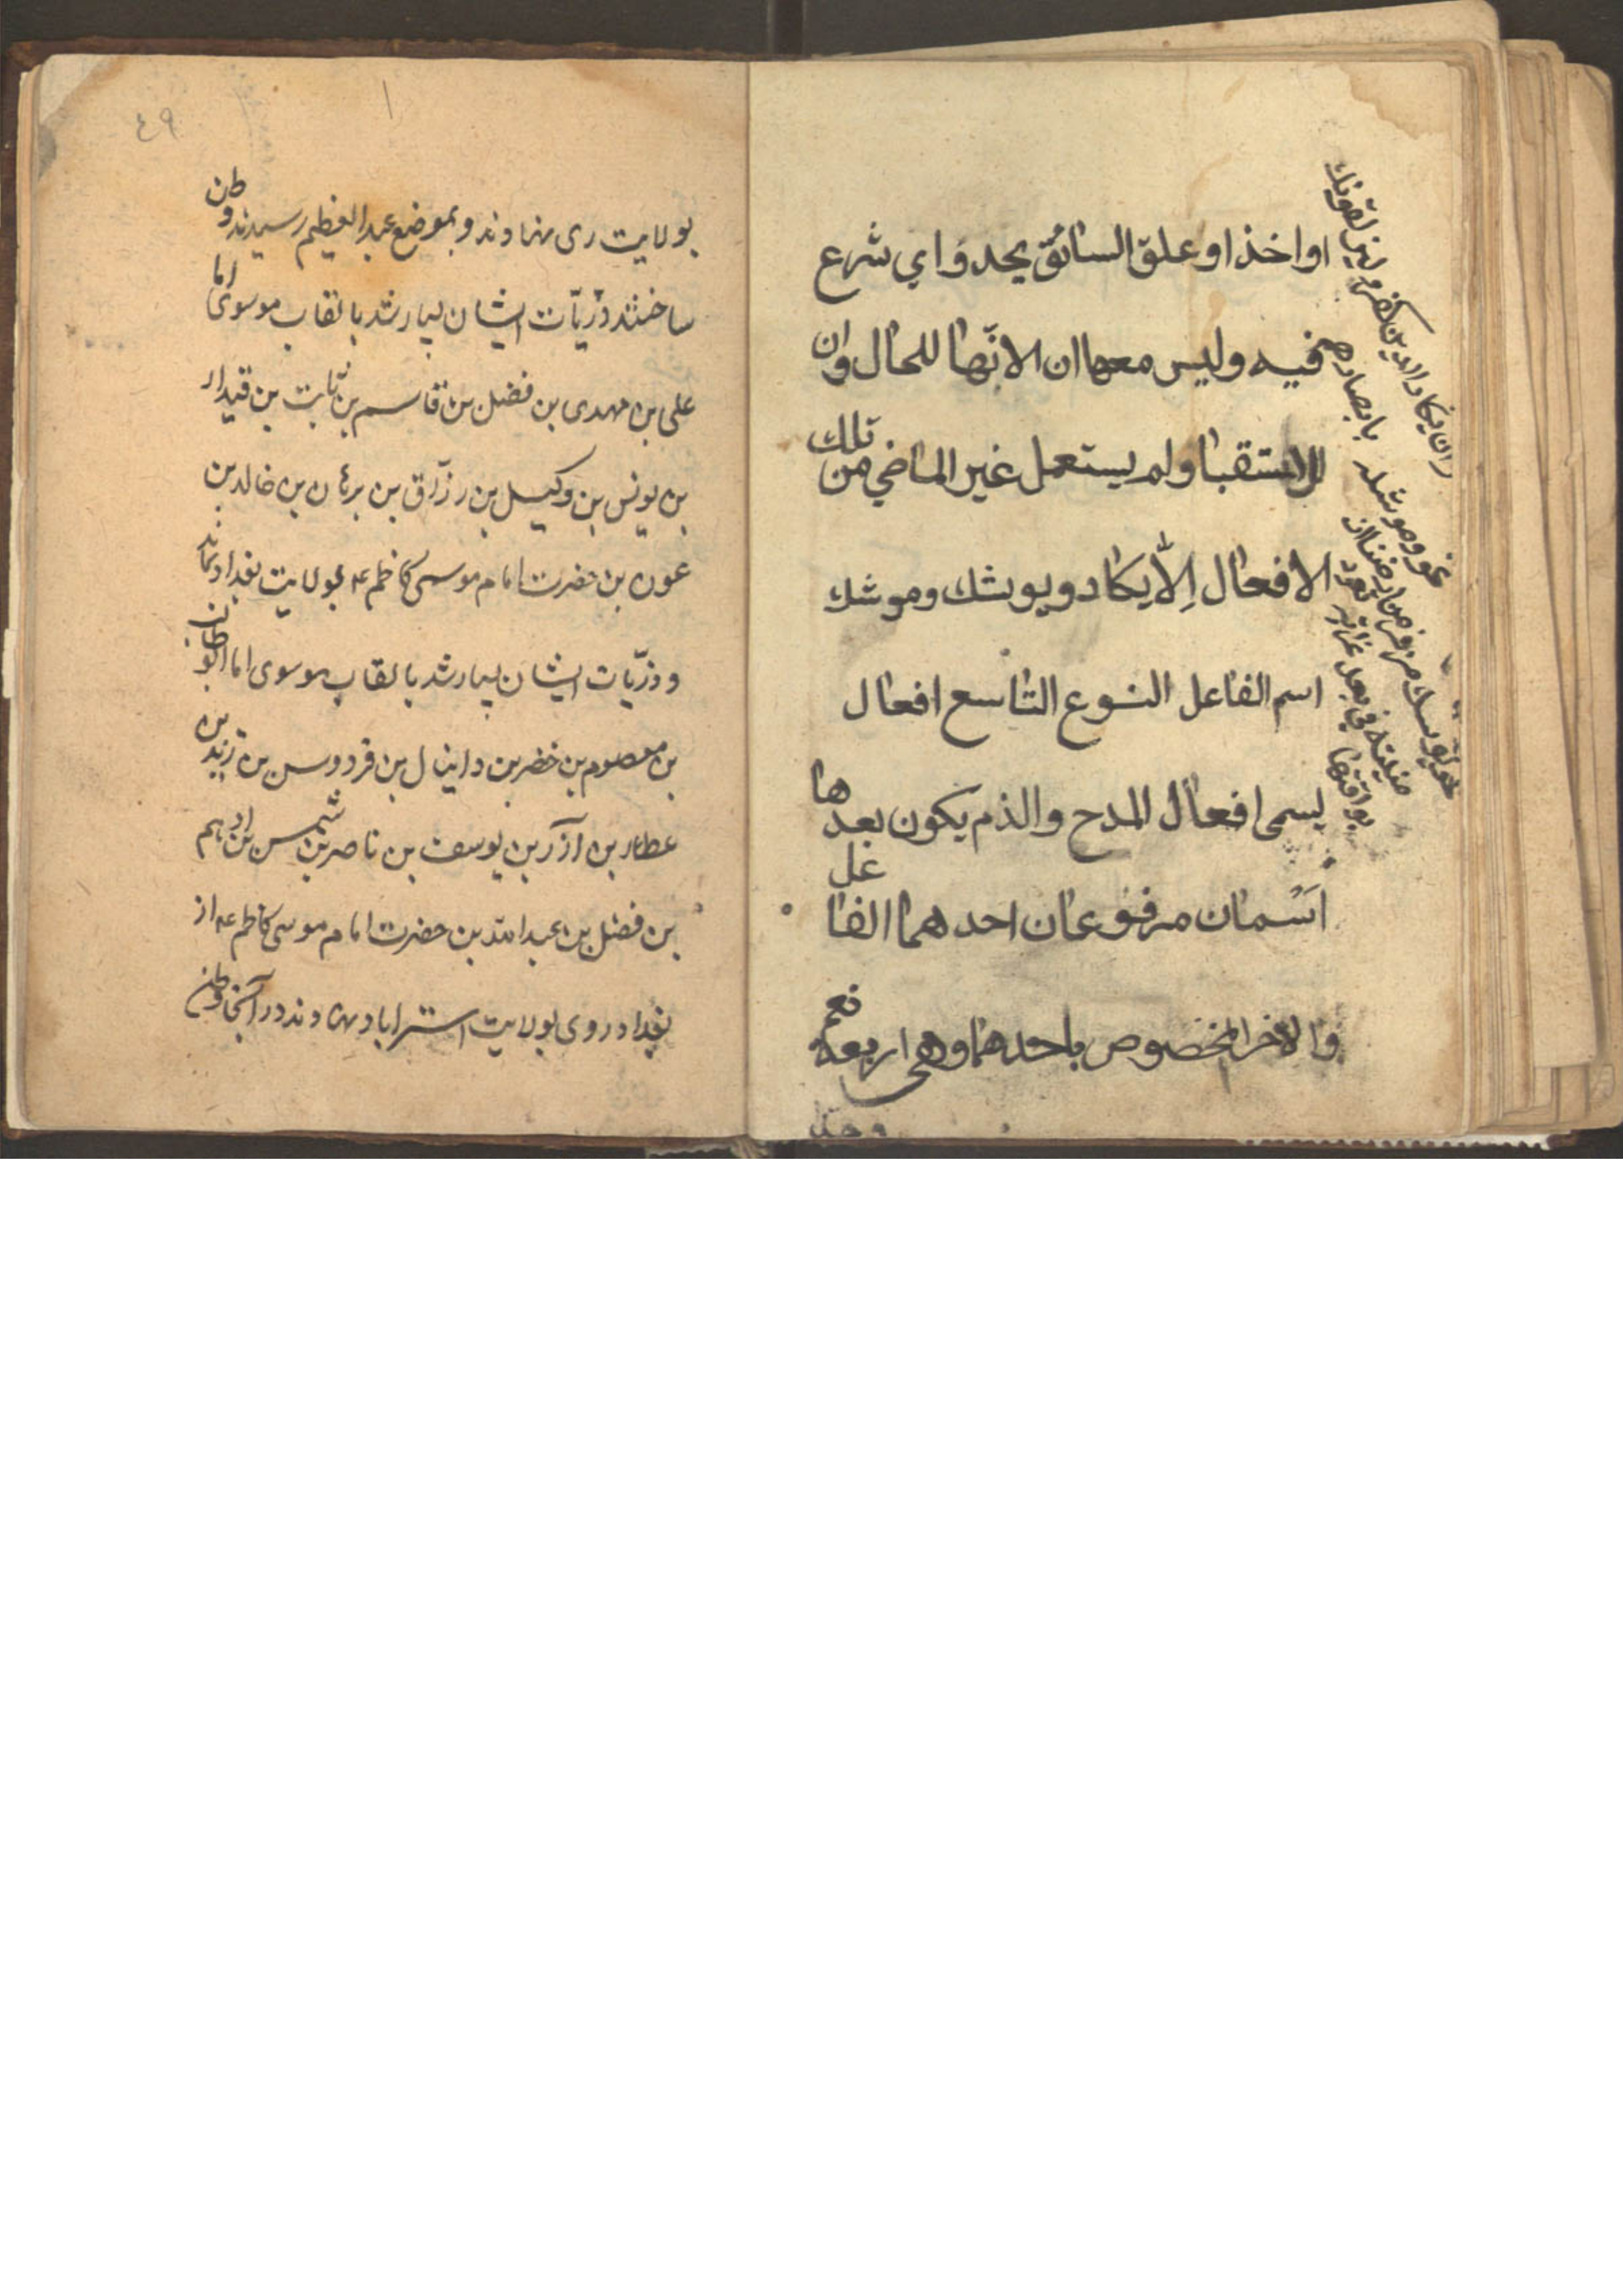 اواخذ او علق السائق يحدو اي شرع
فيه وليس معها ان لانها للحال وان
للاستقبا ولم يستعمل غير الماضي من تلك
الافعال الا يكاد ويوشك وموشك
اسم الفاعل النوع التاسع افعال
يسمى افعال المدح والذم يكون بعدها
اسمان مرفوعان احدهما الفاعل
والاخر المخصوص باحدهما وهي اربعة نعم
وان يكاد الذين كفروا ليزلقونك
بابصارهم
نحو وموشك
يوشك من فر من منيته في بعض غراته يوافقها
٤٩
بولايت رى نهادند و بموضع عبد العظيم رسيدند وطن
ساختند وذريات ايشان بسيار شد بالقاب موسوى اما
على بن مهدى بن فضل بن قاسم بن ثابت بن قيدار
بن يونس بن وكيل بن رزاق بن برهان بن خالد بن
عون بن حضرت امام موسى كاظم ع بولايت بغداد بماند
و ذريات ايشان بسيار شد بالقاب موسوى اما ابو طالب
بن معصوم بن خضر بن دانيال بن فردوس بن زيد بن
عطار بن آذر بن يوسف بن ناصر بن شمس بن ادهم
بن فضل بن عبد الله بن حضرت امام موسى كاظم ع از
بغداد روى بولايت استراباد نهادند در آنجا وطن